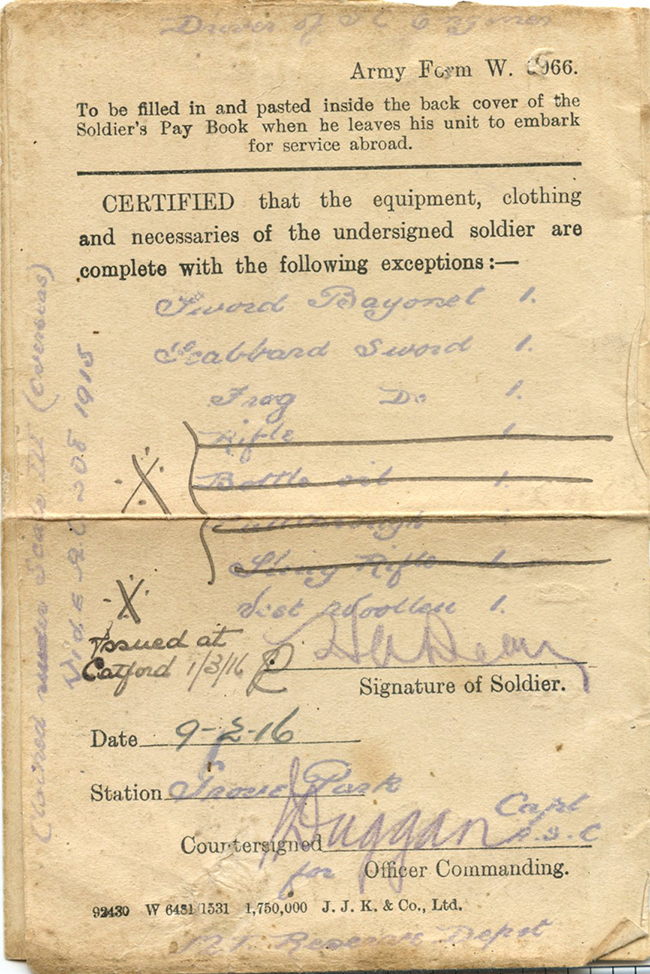 Driver of
Army Form W. 966.
To be filled in and pasted inside the back cover of the
Soldier's Pay Book when he leaves his unit to embark
for service abroad.
CERTIFIED that the equipment, clothing
and necessaries of the undersigned soldier are
complete with the following exceptions:—
Sword Bayonet 1.
Scabbard Sword 1.
Frog Do 1.
Rifle 1
X Bottle oil 1.
Pullthrough 1
Sling Rifle 1.
X Vest Woollen 1.
Issued at
Catford 1/3/16
Signature of Soldier.
Date 9-2-16
Station Grove Park
Capt
Countersigned Duggan A.S.C
for Officer Commanding.
92430 W 6481/1531 1,750,000 J. J. K. & Co., Ltd.
Reserve Depot
(overseas)
1915